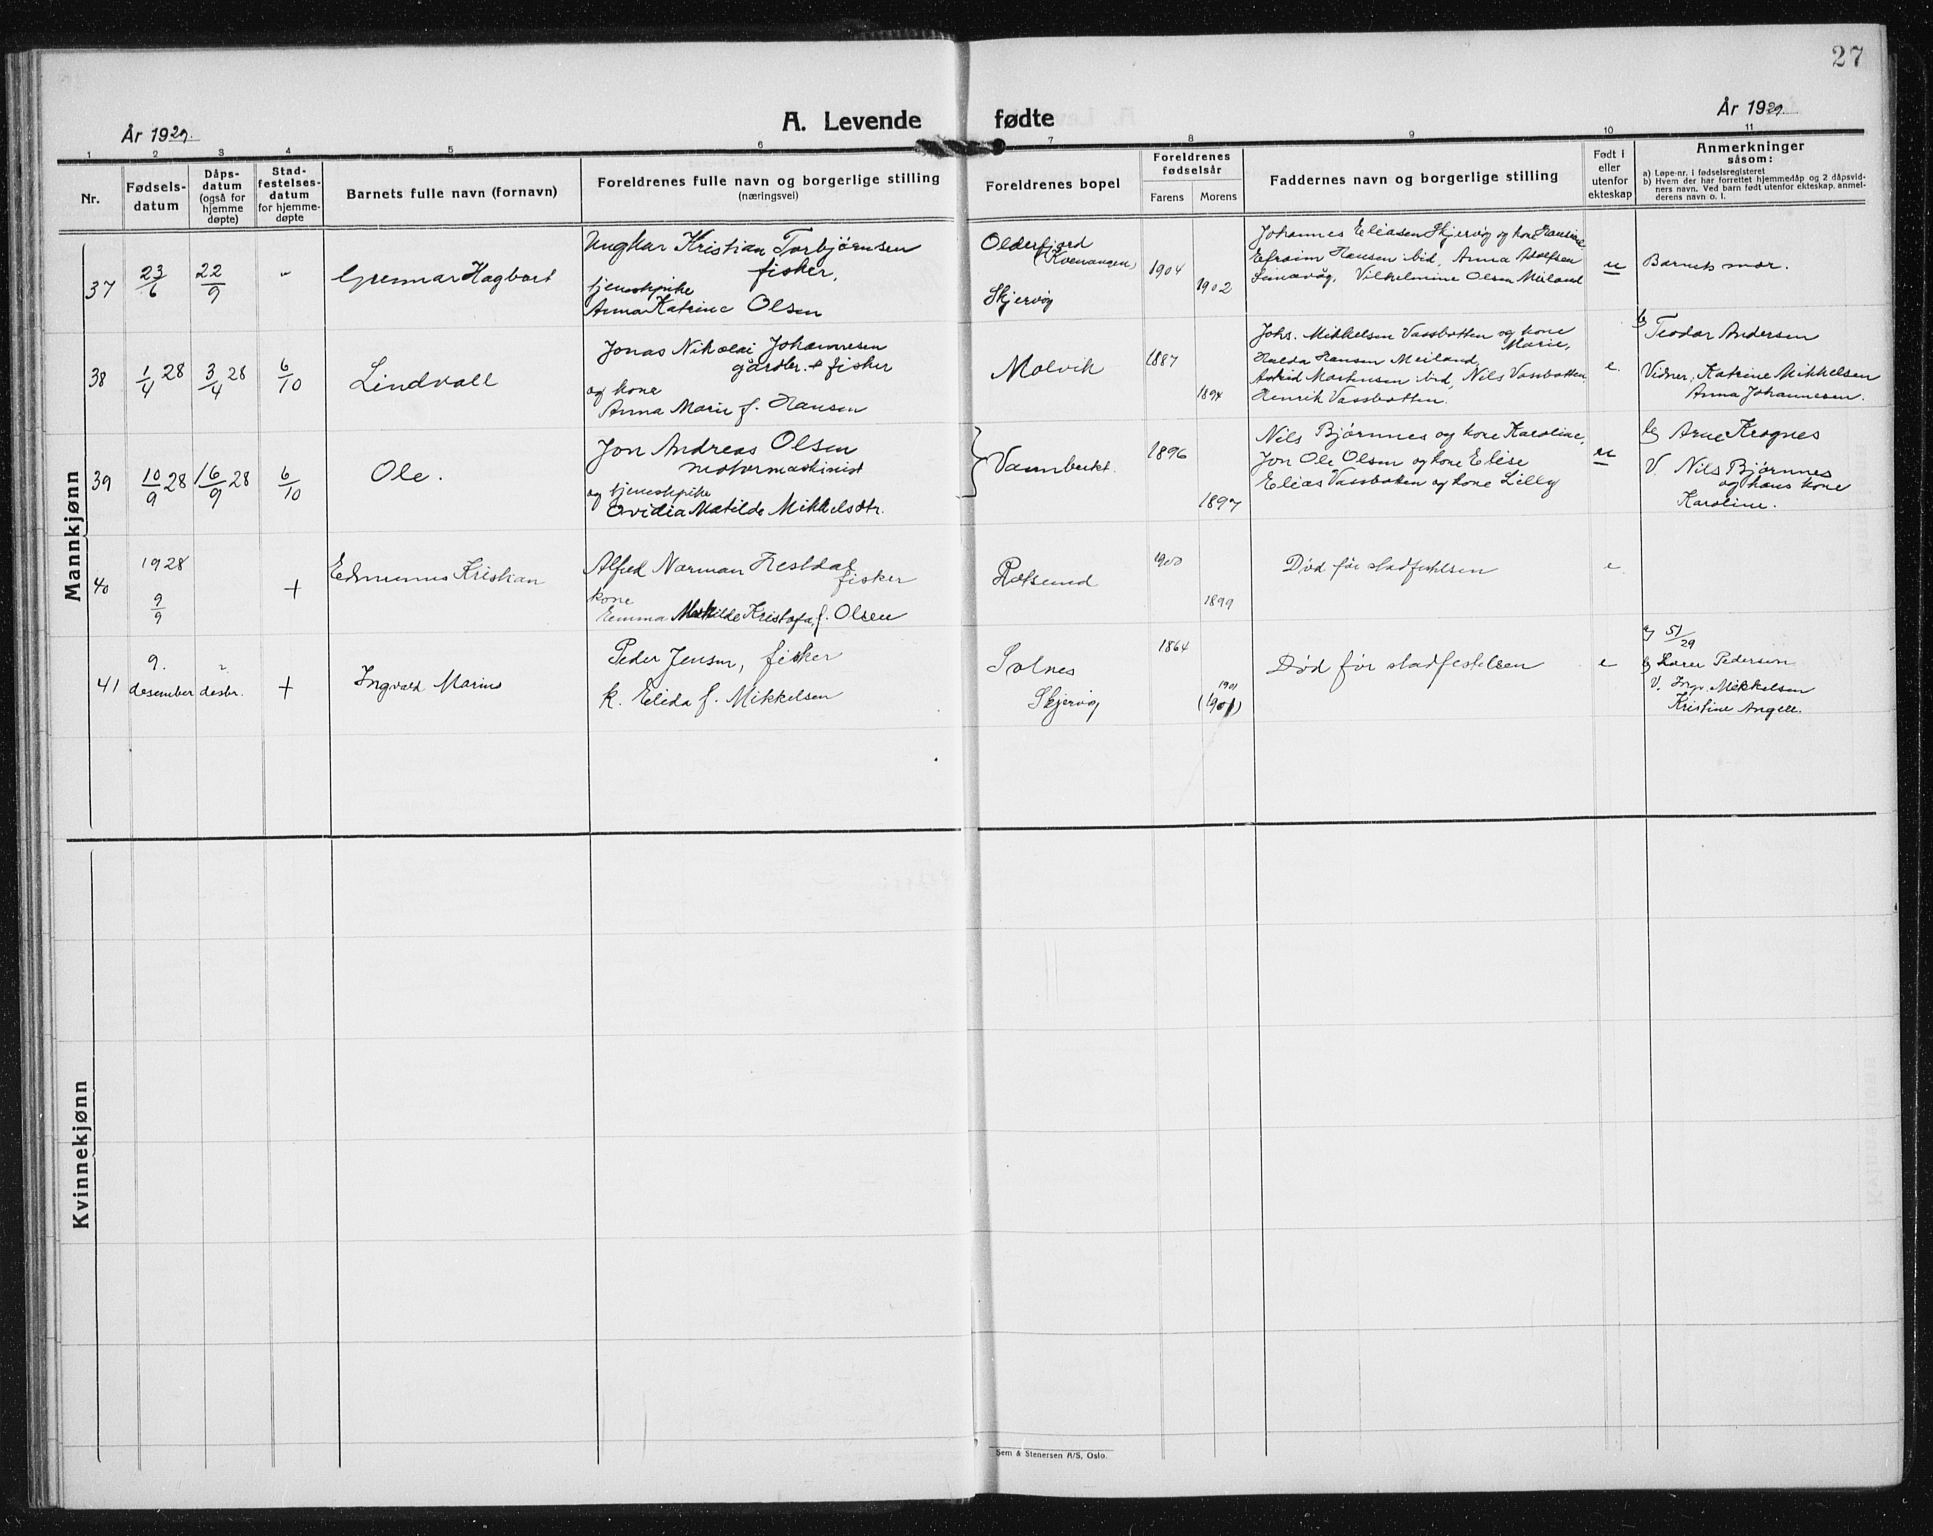 27
År 1929.
A. Levende fødte
År 1929.
1 2 3 4 5 6 7 8 9 10 11
Nr.
Fødsels-
datum
Dåps-
datum
(også for
hjemme
døpte)
Stad-
festelses-
datum
for hjemme-
døpte
Barnets fulle navn (fornavn)
Foreldrenes fulle navn og borgerlige stilling
(næringsvei)
Foreldrenes bopel
Foreldrenes
fødselsår
Farens Morens
Faddernes navn og borgerlige stilling
Født i
eller
utenfor
ekteskap
Anmerkninger
såsom:
a) Løpe-nr. i fødselsregisteret
b) Hvem der har forrettet hjemmedåp og 2 dåpsvid-
ners navn. Ved barn født utenfor ekteskap, anmel-
derens navn o. l.
Mannkjønn
37
23/6
22/9
"
Hagbart
Kristian Torbjørnsen
fisker,
tjenestepike
Anna Katrine Olsen
Olderfjord
(Kvenangen)
Skjervøy
1904
1902
Johannes Eliasen Skjervøy og kone Hansine
Efraim Hansen ibid, Anna Adolfsen
Vilhelmine Olsen Meiland
u
Barnets mor.
38
1/4 28
3/4 28
6/10
Lindvall
Jonas Nikolai Johannesen
gårdbr. + fisker
og kone
Anna Marie f. Hansen
Molvik
1887
1894
Johs. Mikkelsen Vassbotten og kone
Marie,
Halda Hansen Meiland,
Astrid Mortensen ibid, Nils Vassbotten
Henrik Vassbotten.
e.
b) Teodor Andersen
Vidner: Katrine Mikkelsen
Anna Johannesen.
39
10/9 28
16/9 28
6/10
Ole.
Jon Andreas Olsen
motormaskinist
og tjenestepike
Ovidia Matilde Mikkelsdtr.
Vannbeckt.
1896
1897
Nils Bjørnnes og kone Karoline,
Jon Ole Olsen og kone Elise
Elias Vassbotten og kone Lilly
u
b) Arne Krognes
V. Nils Bjørnnes
og hans kone
Karoline.
40
1928
9/9
+
Edmunnus Kristian
Alfred Norman Hestdal
fisker
kone
Emma Matilde Kristofa f. Olsen
Reksund
1900
1899
Død før stadfestelsen
e.
41
9.
desember
"
desbr.
+
Ingvald Marius
Peder Jensen, fisker
k. Elida f. Mikkelsen
Solnes
Skjervøy
1864
1901
(1901)
Død før stadfestelsen
e
a) 51/29
b) Pedersen
V. Ingv. Mikkelsen
Kristine Angell.
Kvinnekjønn
Sem & Stenersen A/S, Oslo.